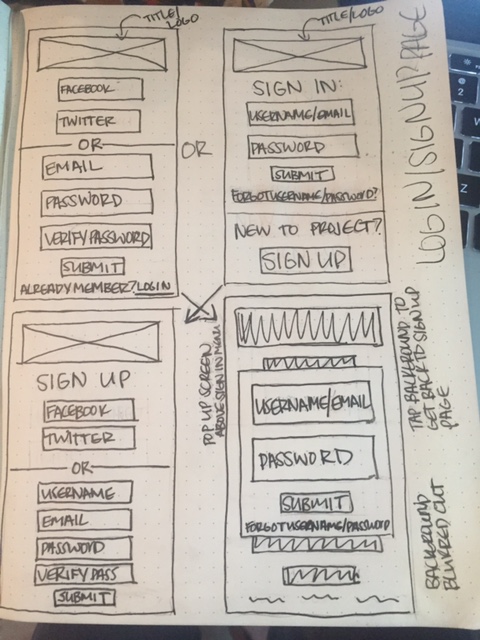 TITLE/
LOGO
FACEBOOK
TWITTER
OR
EMAIL
PASSWORD
VERIFY PASSWORD
SUBMIT
ALREADY MEMBER? LOGIN
OR
TITLE/LOGO
SIGN IN:
USERNAME/EMAIL
PASSWORD
SUBMIT
FORGOT USERNAME/PASSWORD?
NEW TO PROJECT?
SIGN UP
LOGIN/SIGNUP PAGE
SIGN UP
FACEBOOK
TWITTER
OR
USERNAME
EMAIL
PASSWORD
VERIFY PASS
SUBMIT
POP UP SCREEN
ABOVE SIGN IN MENU
USERNAME/EMAIL
PASSWORD
SUBMIT
FORGOT USERNAME/PASSWORD
TAP BACKGROUND TO
GET BACK TO SIGN UP
PAGE
BACKGROUND
BLURRED OUT